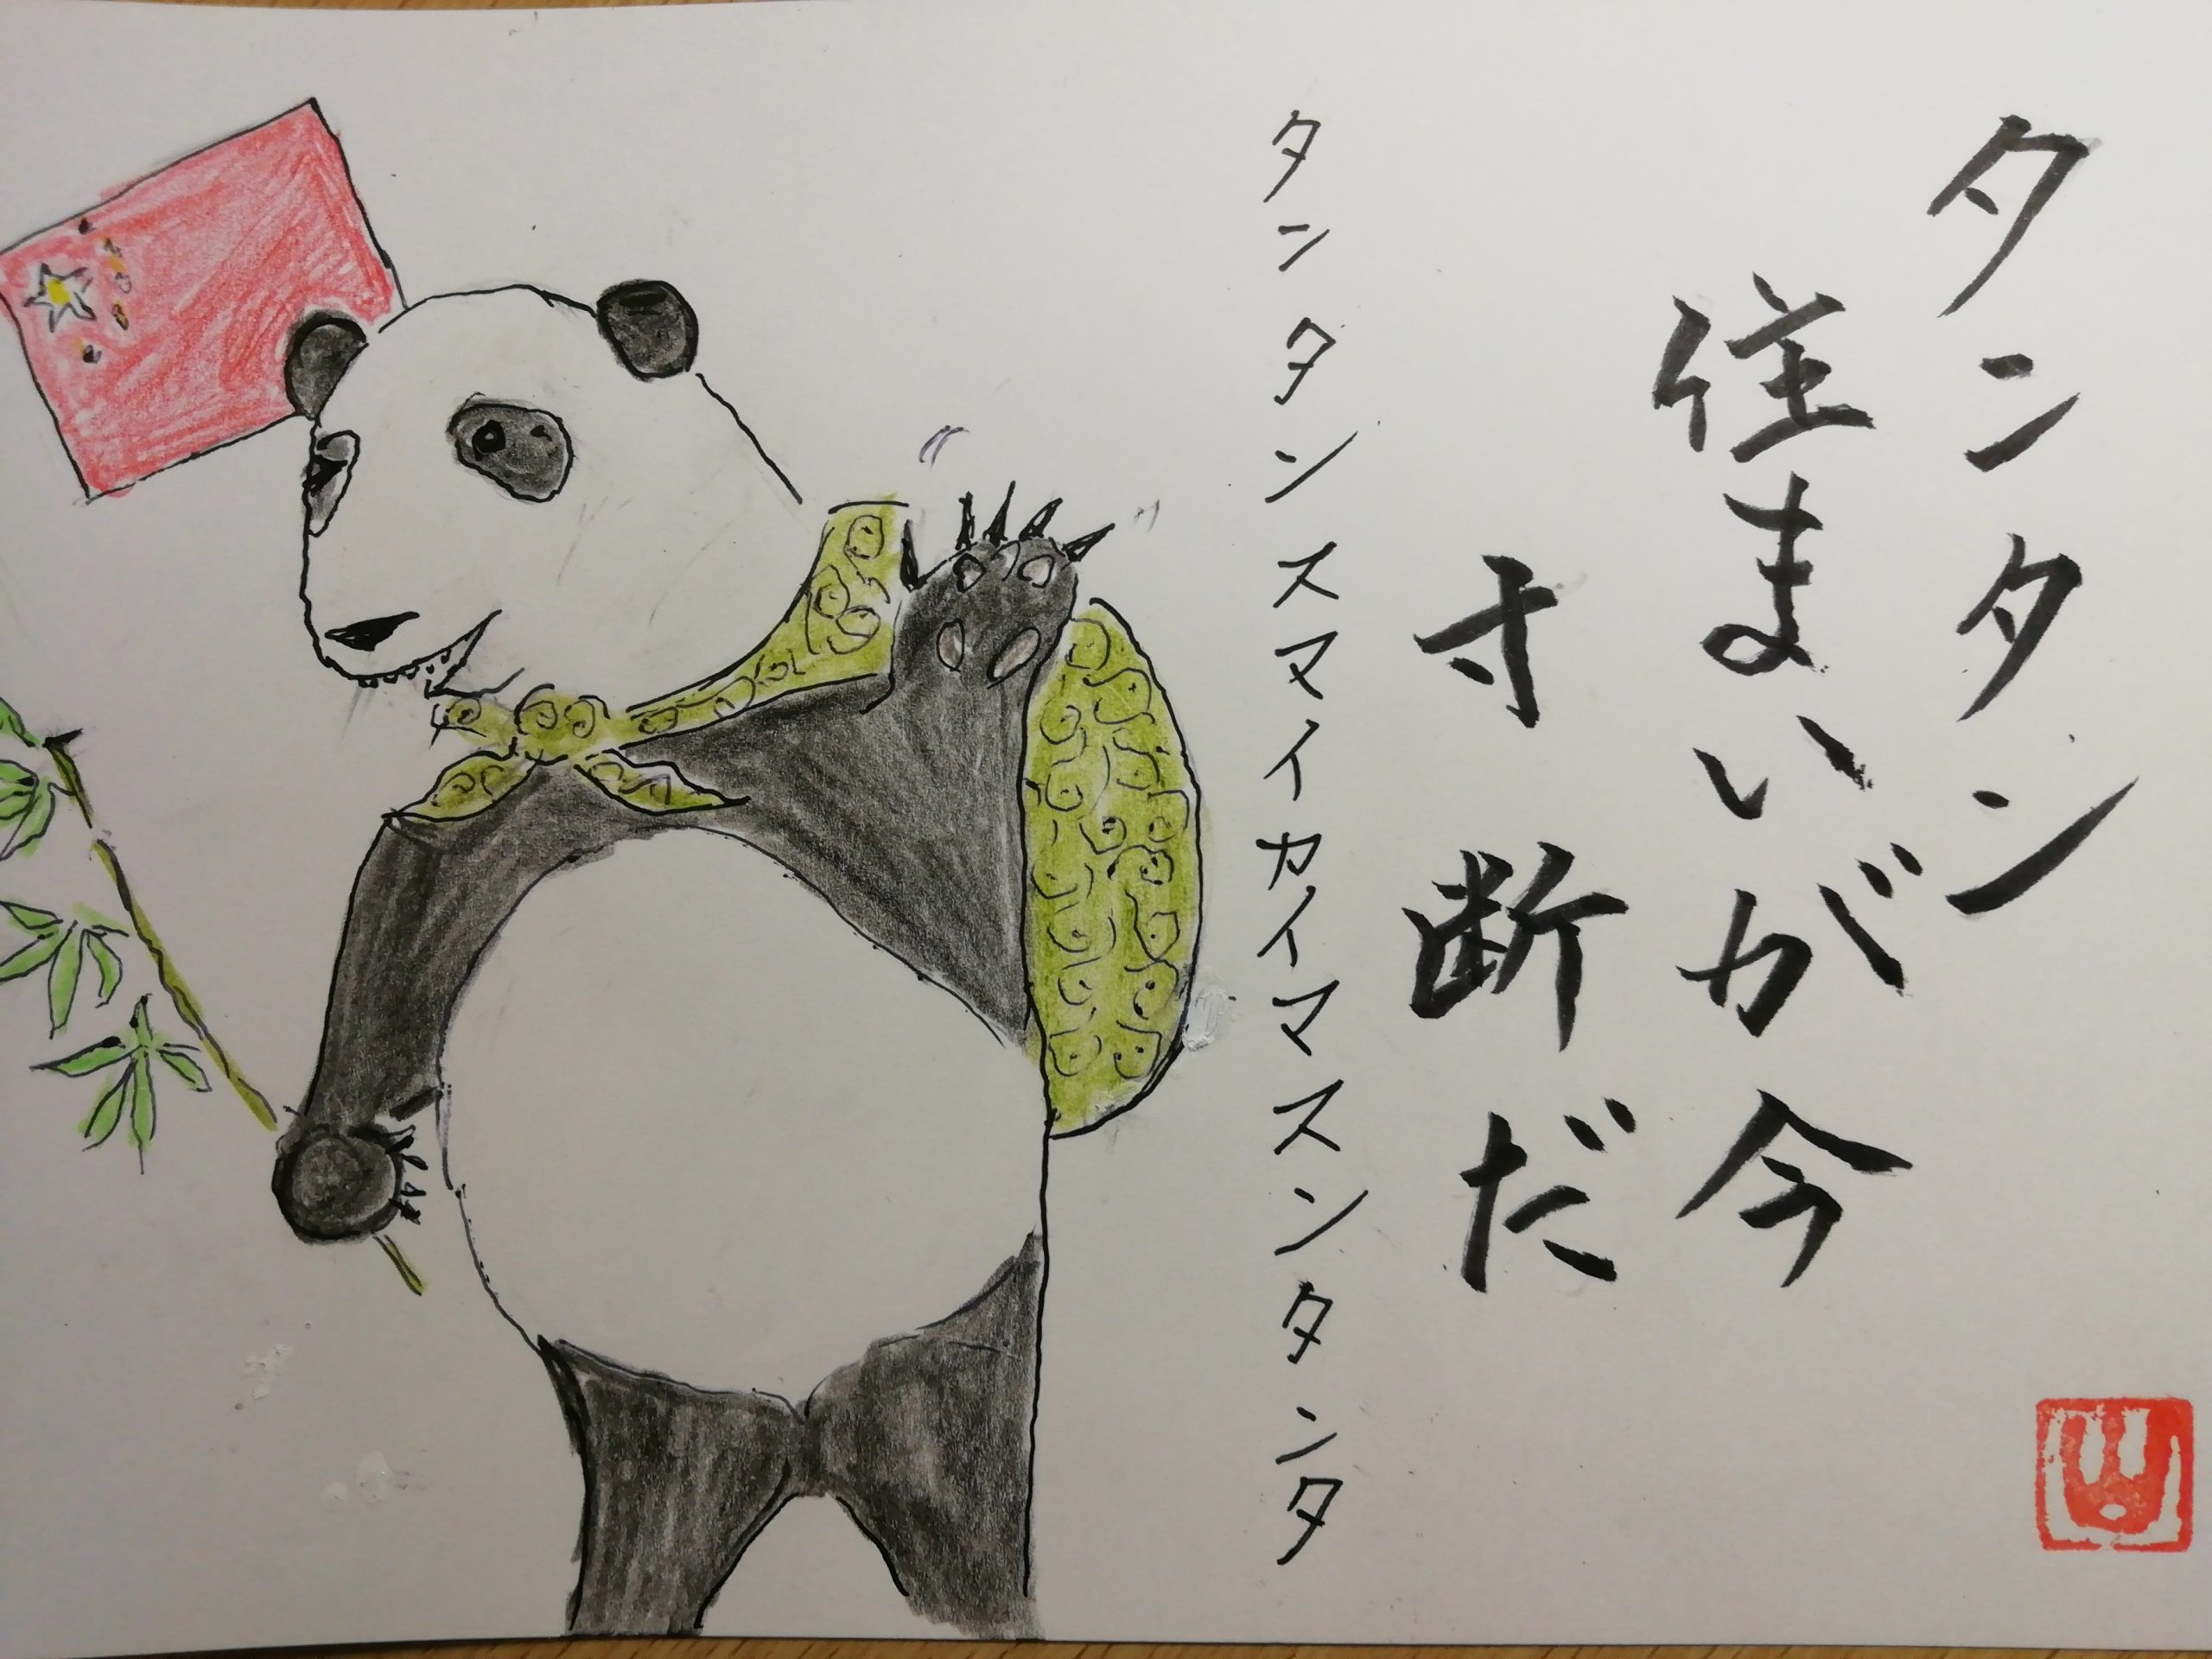 タンタン
住まいが今
寸断だ
タンタンスマイカイマスンタンタ